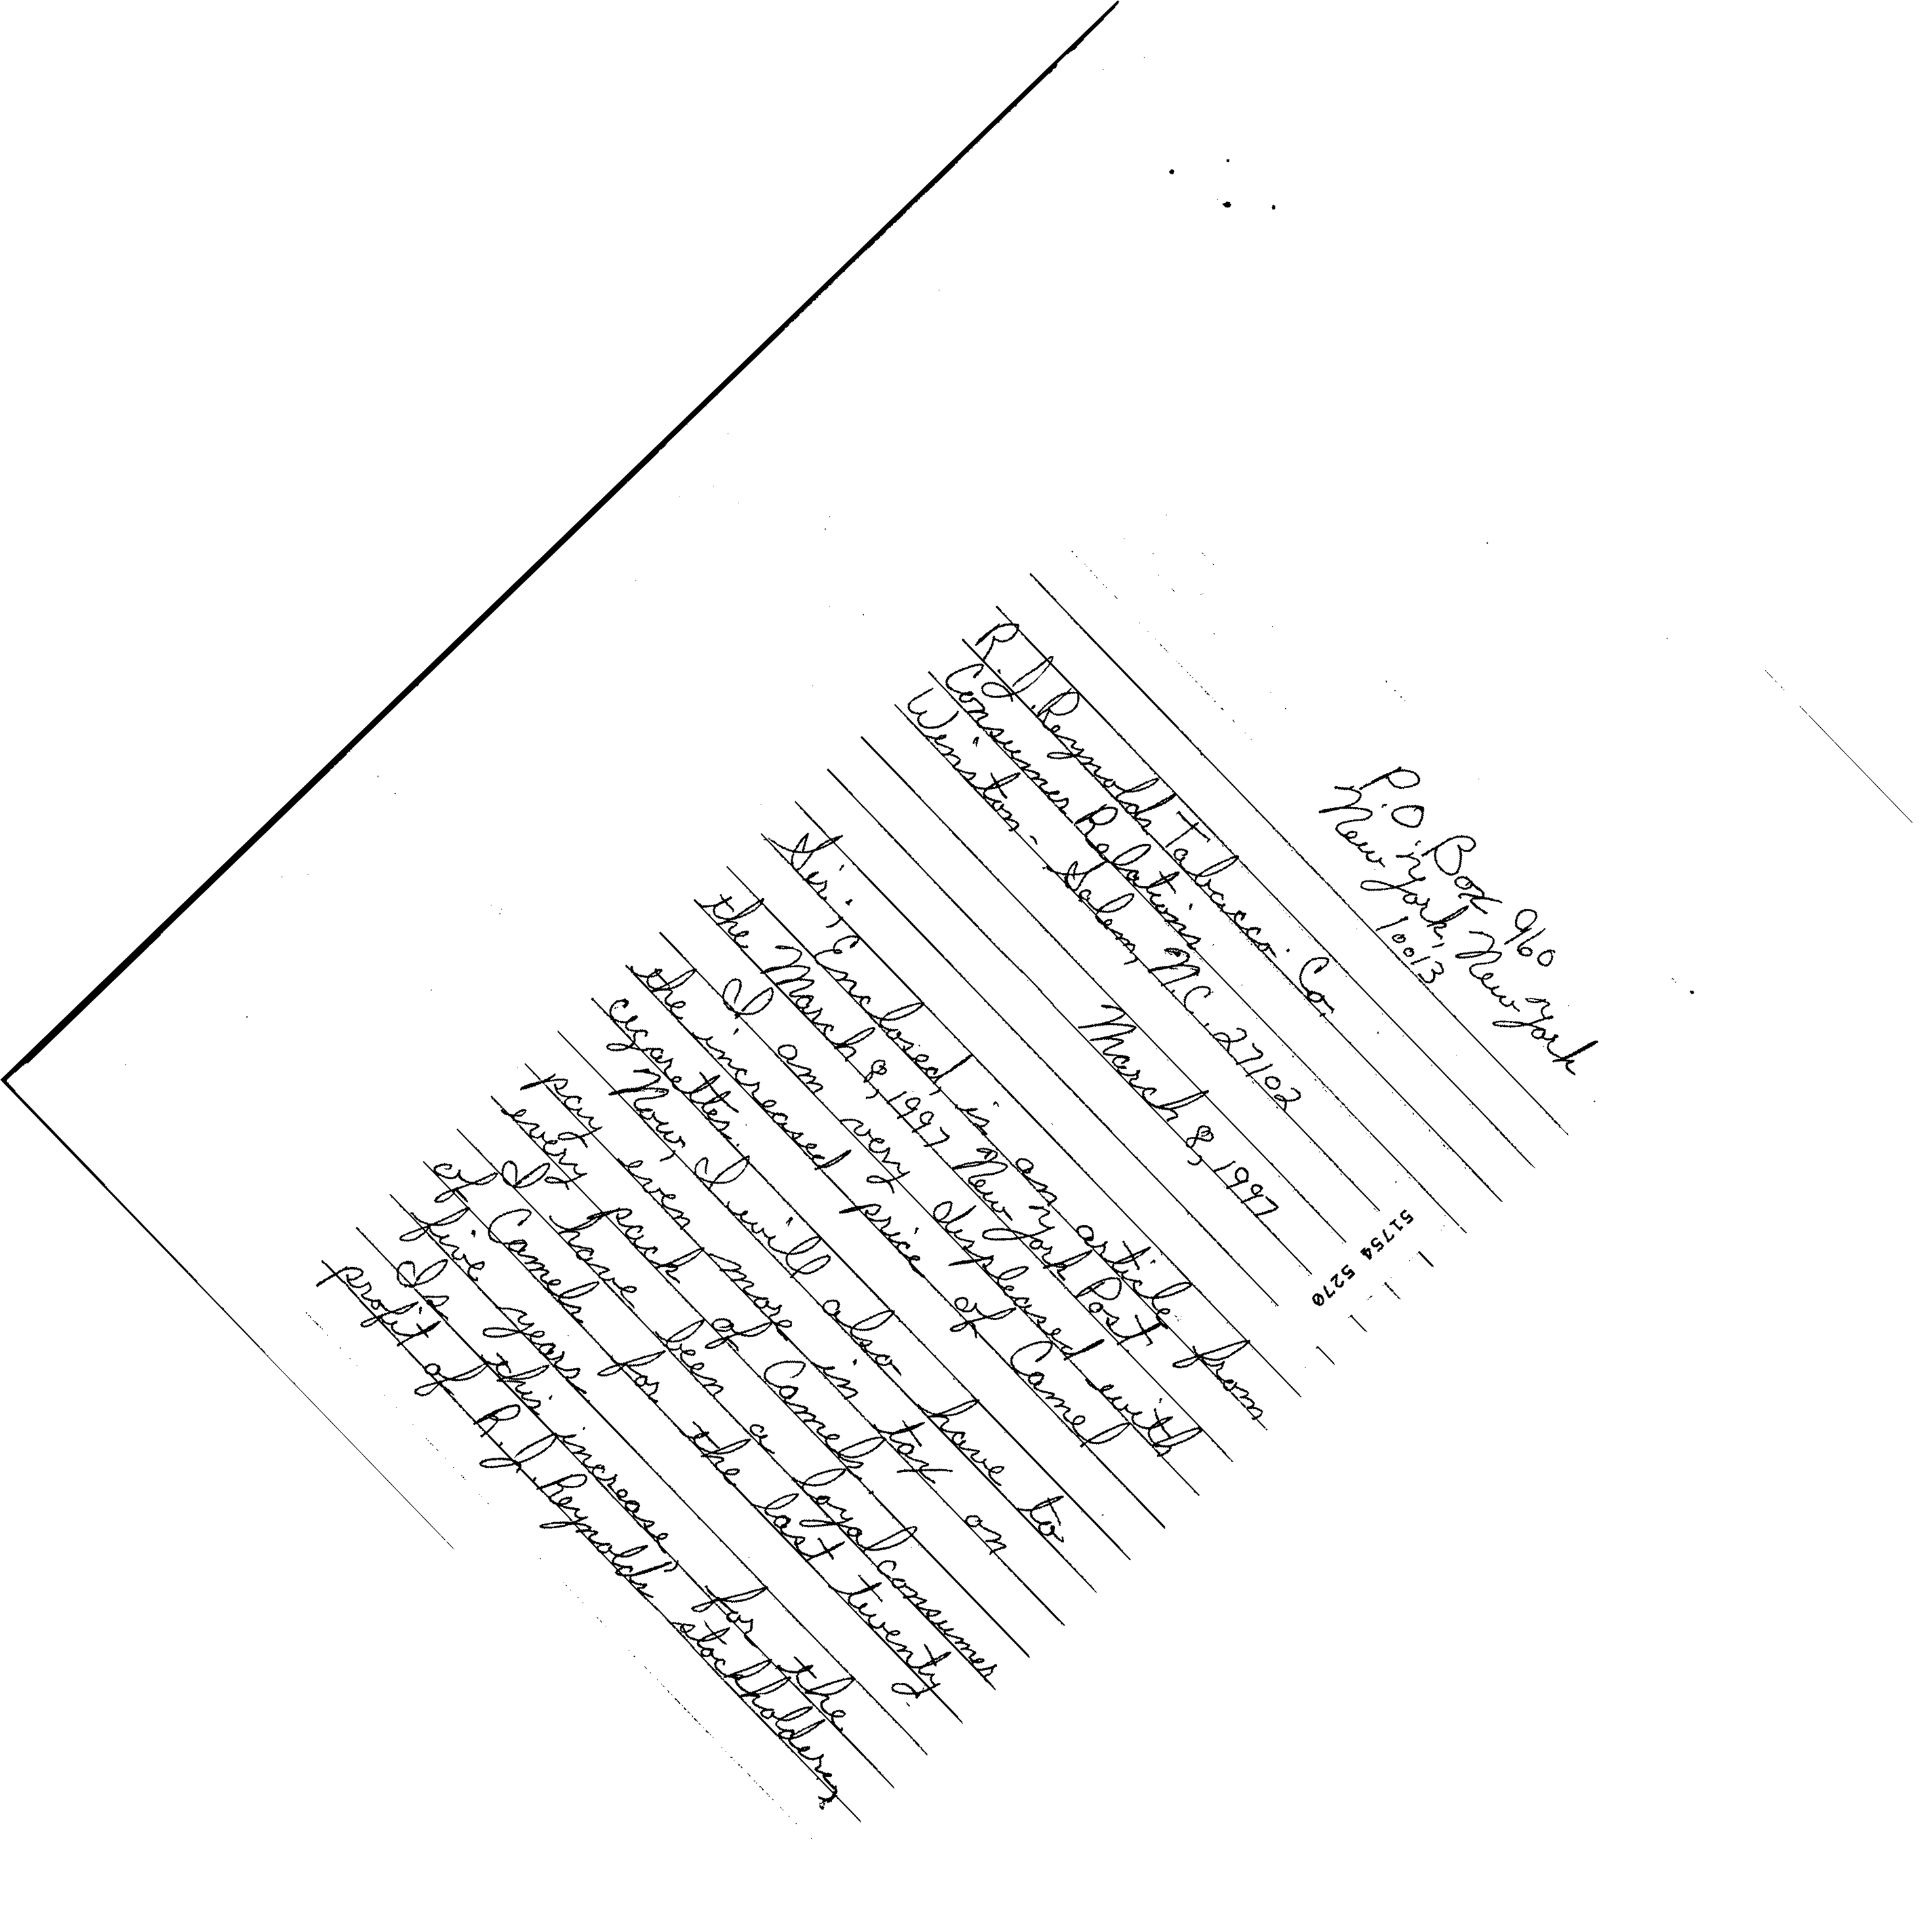 P.O. Box 960
New York, New York
10013
R.J. Reynolds Tobacco Co.
Consumer Relations
Winston-Salem, N.C. 27102
March 8, 1997
Sir,
Enclosed is an article from
the March 8, 1997 New York Post.
I am very displeased with
the increased price of Camel
cigarettes.
Now, I will also have to
pay even more in tax on
every pack of Camels.
I have been a loyal consumer
of Camels for the last twenty
five years.
Is this increase for the
profit of R.J. Reynolds stockholders,
51754 5270